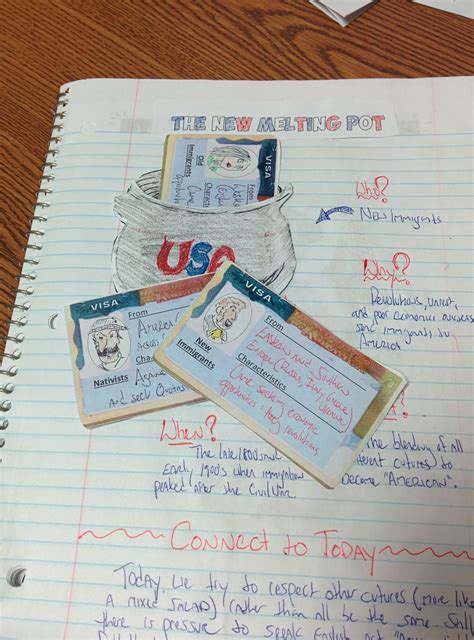 THE NEW MELTING POT
VISA
From
Western
Old
Immigrants
Characteristics
Came
USA
Who?
New Immigrants
Why?
Revolutions, unrest,
and poor economies
some immigrants to
America
VISA
From
America
Characteristics
Nativists
Against
and seek Quotas
VISA
From
Eastern and Southern
Europe (Russia, Italy, Greece, Ukraine
New
Immigrants
Characteristics
Came seeking economic
opportunities + fleeing revolutions
When?
The late 1800s and
Early 1900s when immigration
peaked after the Civil War
The blending of all
different cutures to
become "AMERICAN".
Connect to Today
Today we try to respect other cutures (more like
a mixed salad) rather than all be the same. Still
there is pressure to speak